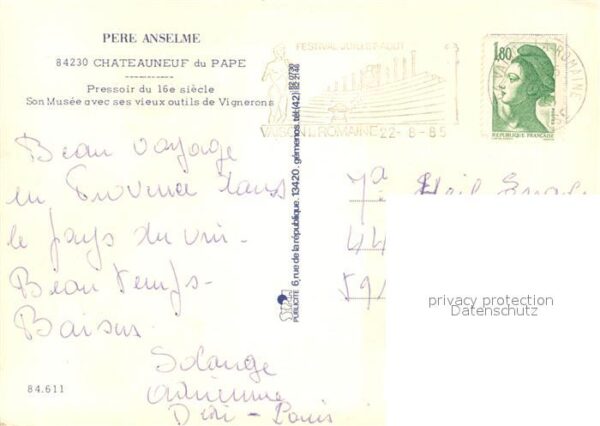 PERE ANSELME
84230 CHATEAUNEUF du PAPE
Pressoir du 16e siècle
Son Musée avec ses vieux outils de Vignerons
FESTIVAL JUILLET AOUT
VAISON L. ROMAINE 22-8-85
1,80
REPUBLIQUE FRANÇAISE
ROMAINE
PUBLICITÉ 6, rue de la république. 13420. gémenos. tél. (42)
Beau voyage
en Provence dans
le pays du vin-
Beau temps-
Baisers
Solange
Adrienne
Louis
44
59
privacy protection
Datenschutz
84.611